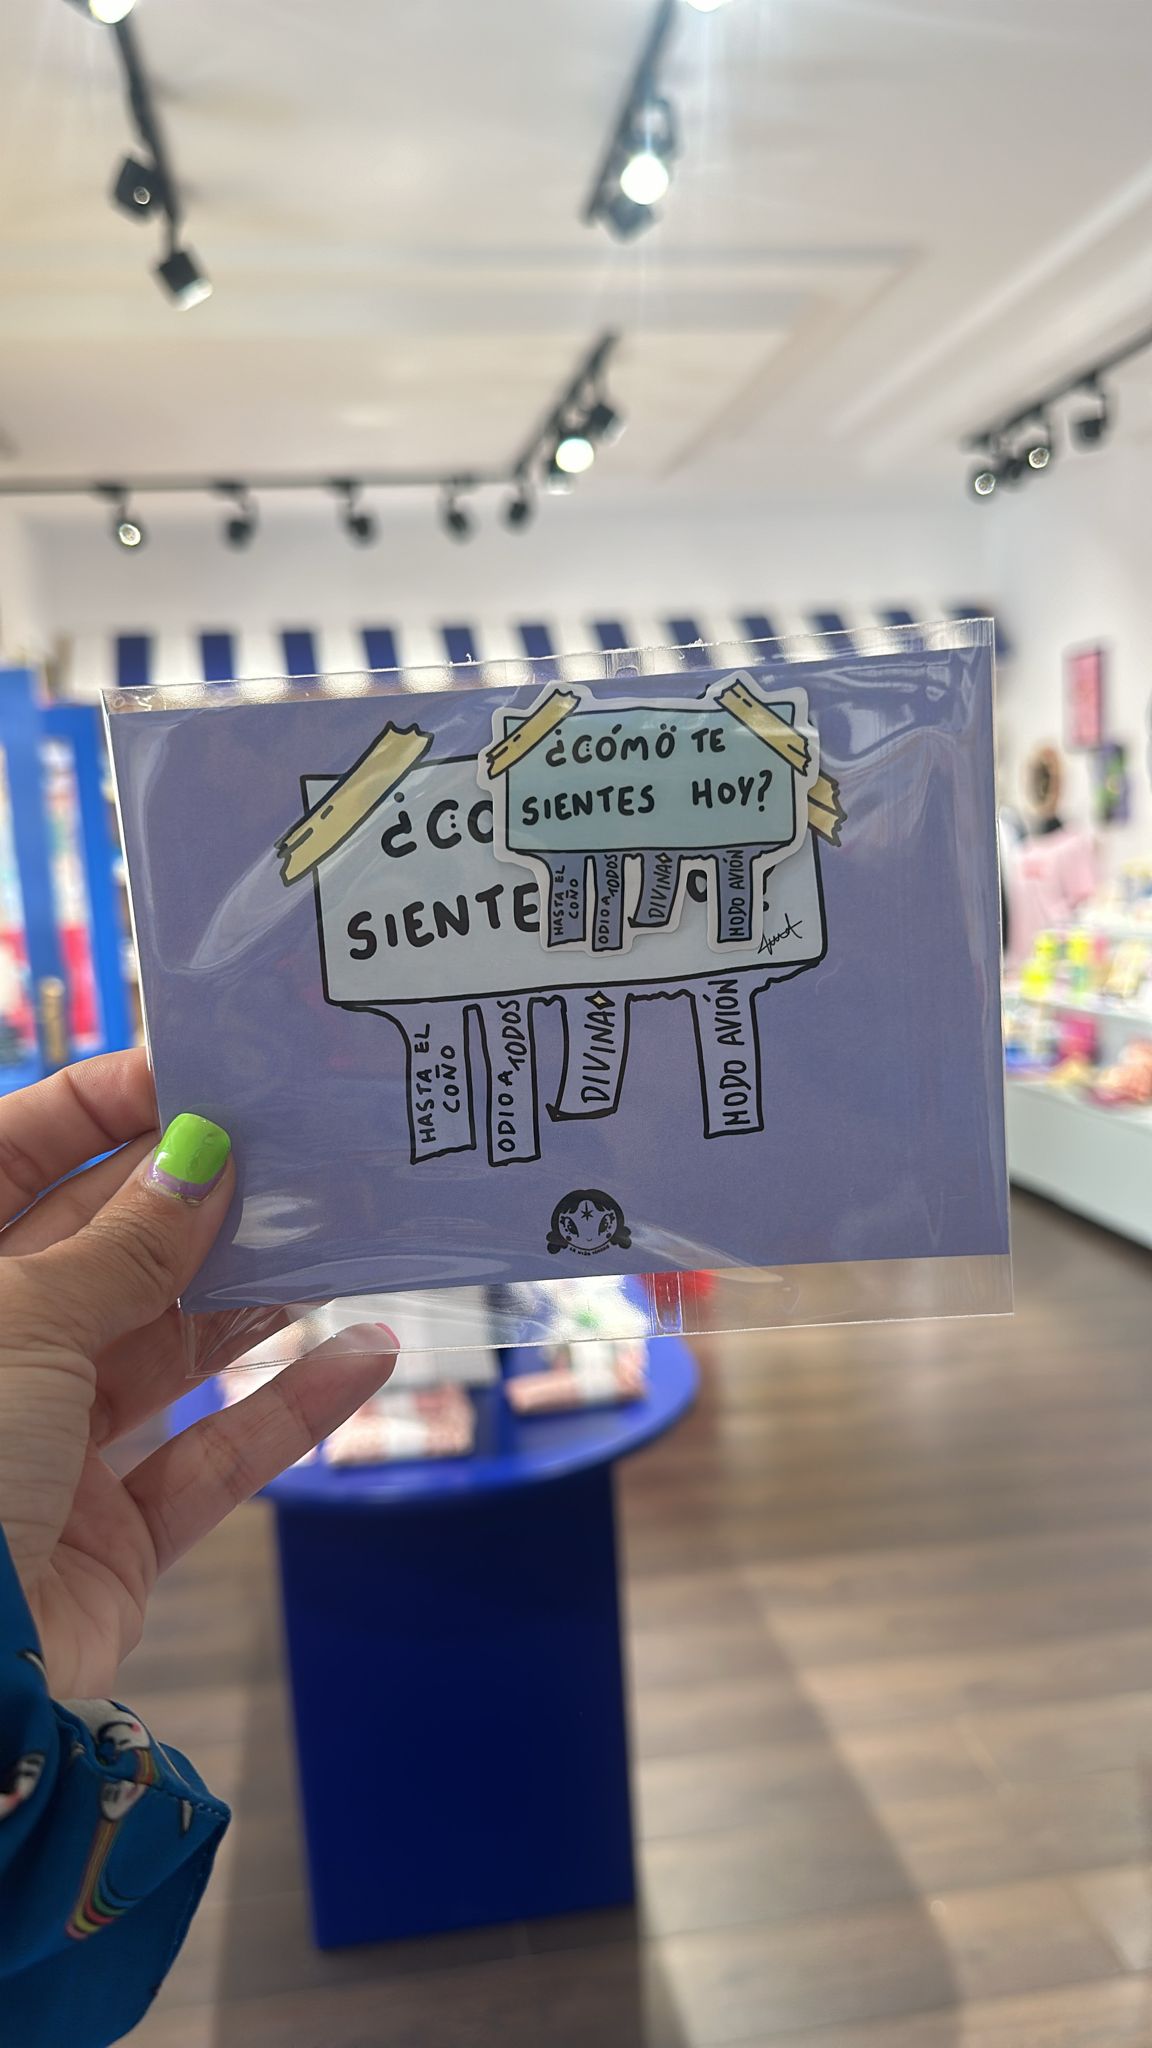 ¿CÓMO TE
SIENTES HOY?
HASTA EL
COÑO
ODIO A TODOS
DIVINA
MODO AVIÓN
¿CÓ
SIENTE
?
HASTA EL
COÑO
ODIO A TODOS
DIVINA
MODO AVIÓN